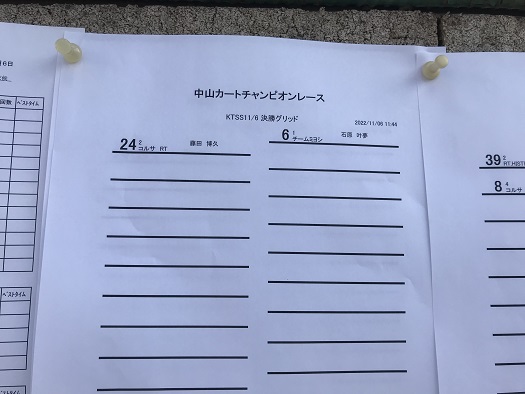 月6日
回数 ベストタイム
ベストタイム
中山カートチャンピオンレース
KTSS11/6 決勝グリッド
2022/11/06 11:44
24 2 コルサ RT 藤田 博久
6 1 チームミヨシ 石原 叶夢
39 2
8 4 コルサ